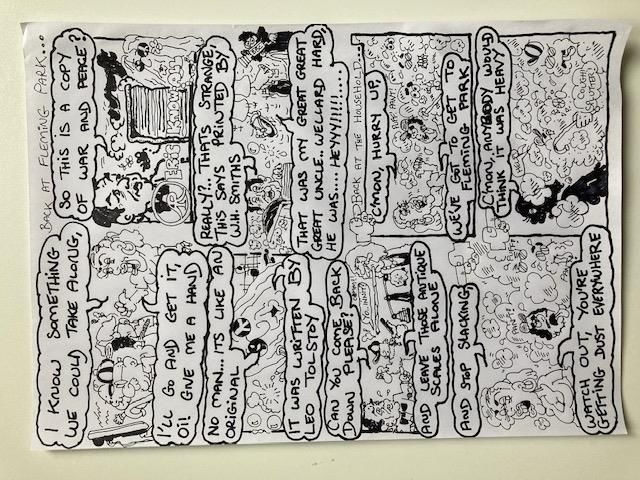 I KNOW SOMETHING
WE COULD TAKE ALONG,
I'LL GO AND GET IT,
Oi! GIVE ME A HAND
BACK AT FLEMING PARK...
SO THIS IS A COPY
OF WAR AND PEACE?
NO MAN... ITS LIKE AN
ORIGINAL
IT WAS WRITTEN BY
LEO TOLSTOY
REALLY?.. THAT'S STRANGE,
THIS SAYS PRINTED BY
W.H. SMITHS
THAT WAS MY GREAT GREAT
GREAT UNCLE. WELLARD HARD,
HE WAS.... HEYYY!!!!!.....
CAN YOU COME BACK
DOWN PLEASE?
AND LEAVE THOSE ANTIQUE
SCALES ALONE
BACK AT THE HOUSEHOLD...
C'MON, HURRY UP,
WE'VE GOT TO GET TO
FLEMING PARK
AND STOP SLACKING,
WATCH OUT, YOU'RE
GETTING DUST EVERYWHERE
C'MON, ANYBODY WOULD
THINK IT WAS HEAVY
COUGH!
SPLUTTER!